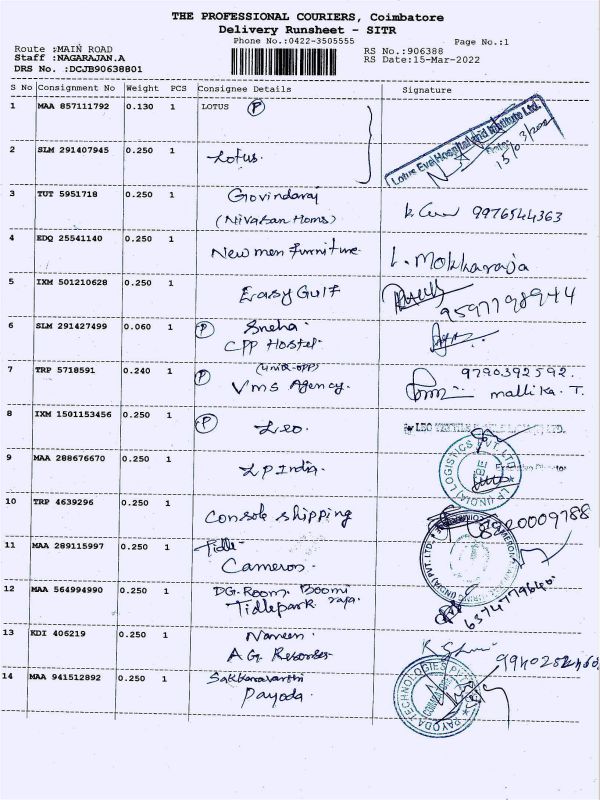 THE PROFESSIONAL COURIERS, Coimbatore
Delivery Runsheet - SITR
Phone No.:0422-3505555 Page No.:1
Route :MAIN ROAD RS No.:906388
Staff :NAGARAJAN.A RS Date:15-Mar-2022
DRS No. :DCJB90638801
S No Consignment No Weight PCS Consignee Details Signature
1 MAA 857111792 0.130 1 LOTUS P
Lotus Eye Hospital and Institute Ltd.
2 SLM 291407945 0.250 1 Lotus.
3 TUT 5951718 0.250 1 Govindaraj
(Nivasan Homs) 9976544363
4 EDQ 25541140 0.250 1 New men Furniture
5 IXM 501210628 0.250 1 Easy Gulf 9597798944
6 SLM 291427499 0.060 1 P Sneha.
CPP Hostel.
7 TRP 5718591 0.240 1 P 9790392592.
Vms Agency. mallika. T.
8 IXM 1501153456 0.250 1 P Leo.
9 MAA 288676670 0.250 1 LP India.
LOGISTICS PVT. LTD.
10 TRP 4639296 0.250 1 Console shipping
11 MAA 289115997 0.250 1 Tidle
Cameron.
12 MAA 564994990 0.250 1 DG. Room. Boomi
Tidlepark raja. 6374779640.
13 KDI 406219 0.250 1 Naveen.
A.G. Resorses
14 MAA 941512892 0.250 1 Sakkaravarthi
Payoda.
PAYODA TECHNOLOGIES PVT